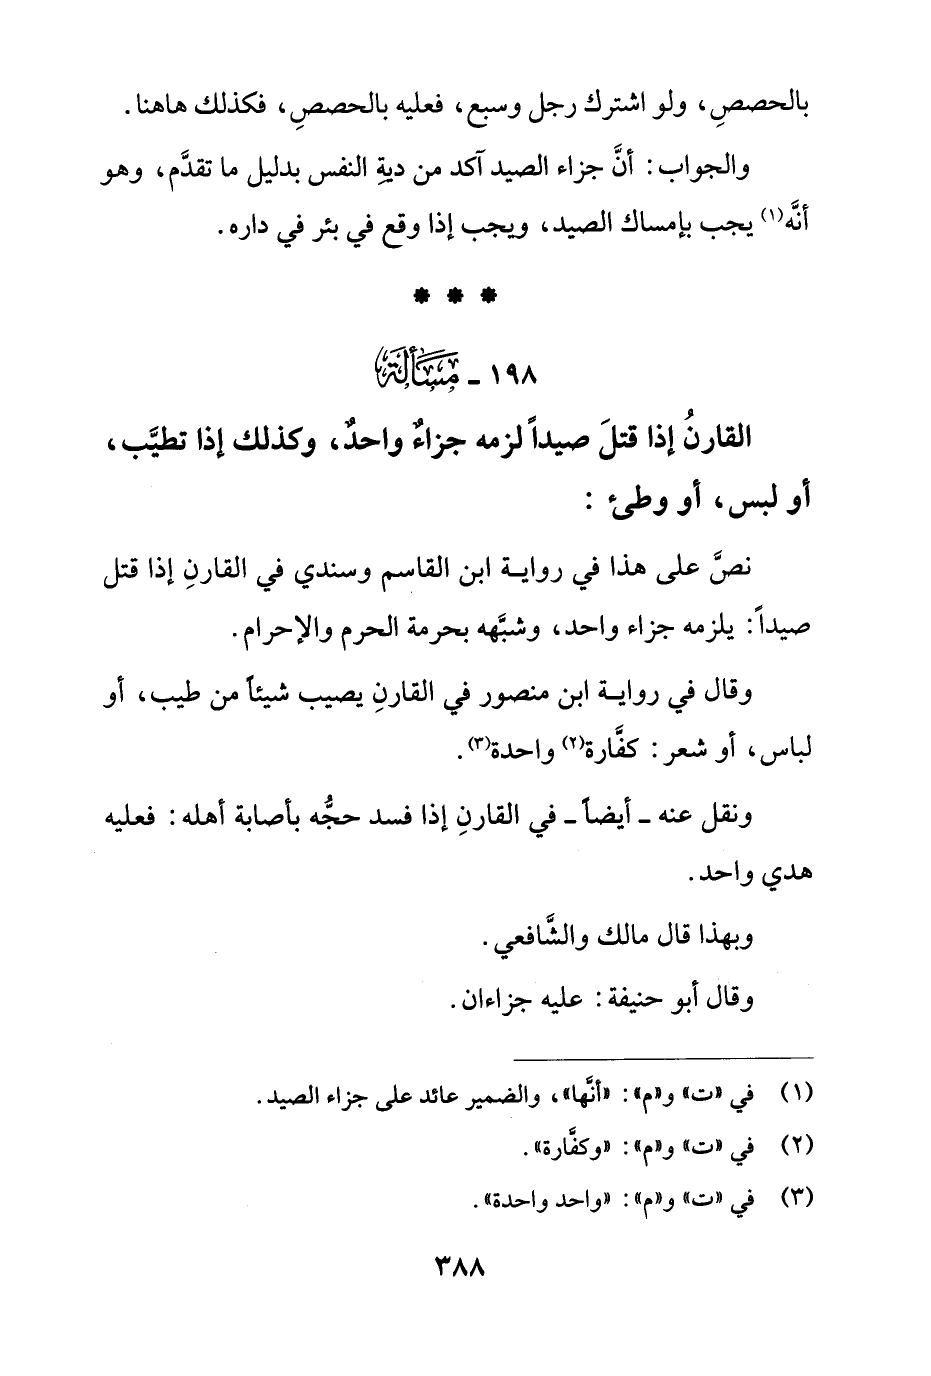 بالحصصِ، ولو اشترك رجل وسبع، فعليه بالحصصِ، فكذلك هاهنا.
والجواب: أنَّ جزاء الصيد آكد من ديةِ النفس بدليل ما تقدَّم، وهو
أنَّه(١) يجب بإمساك الصيد، ويجب إذا وقع في بئر في داره.
* * *
١٩٨ - مسألة
القارنُ إذا قتلَ صيداً لزمه جزاءٌ واحدٌ، وكذلك إذا تطيَّب،
أو لبس، أو وطئ:
نصَّ على هذا في رواية ابن القاسم وسندي في القارنِ إذا قتل
صيداً: يلزمه جزاء واحد، وشبَّهه بحرمة الحرم والإحرام.
وقال في رواية ابن منصور في القارنِ يصيب شيئاً من طيب، أو
لباس، أو شعر: كفَّارة(٢) واحدة(٣).
ونقل عنه - أيضاً - في القارنِ إذا فسد حجُّه بأصابة أهله: فعليه
هدي واحد.
وبهذا قال مالك والشَّافعي.
وقال أبو حنيفة: عليه جزاءان.
(١) في «ت» و«م»: «أنَّها»، والضمير عائد على جزاء الصيد.
(٢) في «ت» و«م»: «وكفَّارة».
(٣) في «ت» و«م»: «واحد واحدة».
٣٨٨